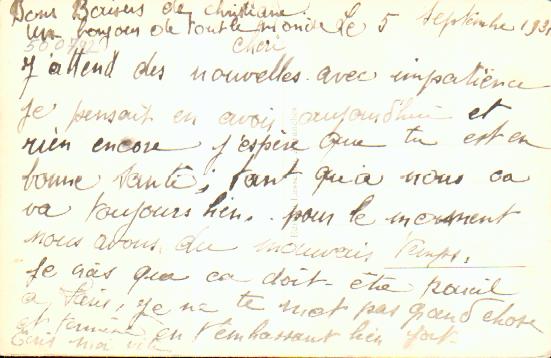 Bons Baisers de christiane.
un bonjour de tout le monde Le 5 Septembre 193
cheri
J'attend des nouvelles avec impatience
je pensait en avoir aujourd'hui et
rien encore j'espère que tu est en
bonne santé; tant qu'a nous ca
va toujours bien. pour le moment
nous avons du mauvais temps.
Je crois que ca doit être pareil
a Paris, je ne te met pas grand chose
et termine en t'embrassant bien fort
Ecris moi vite